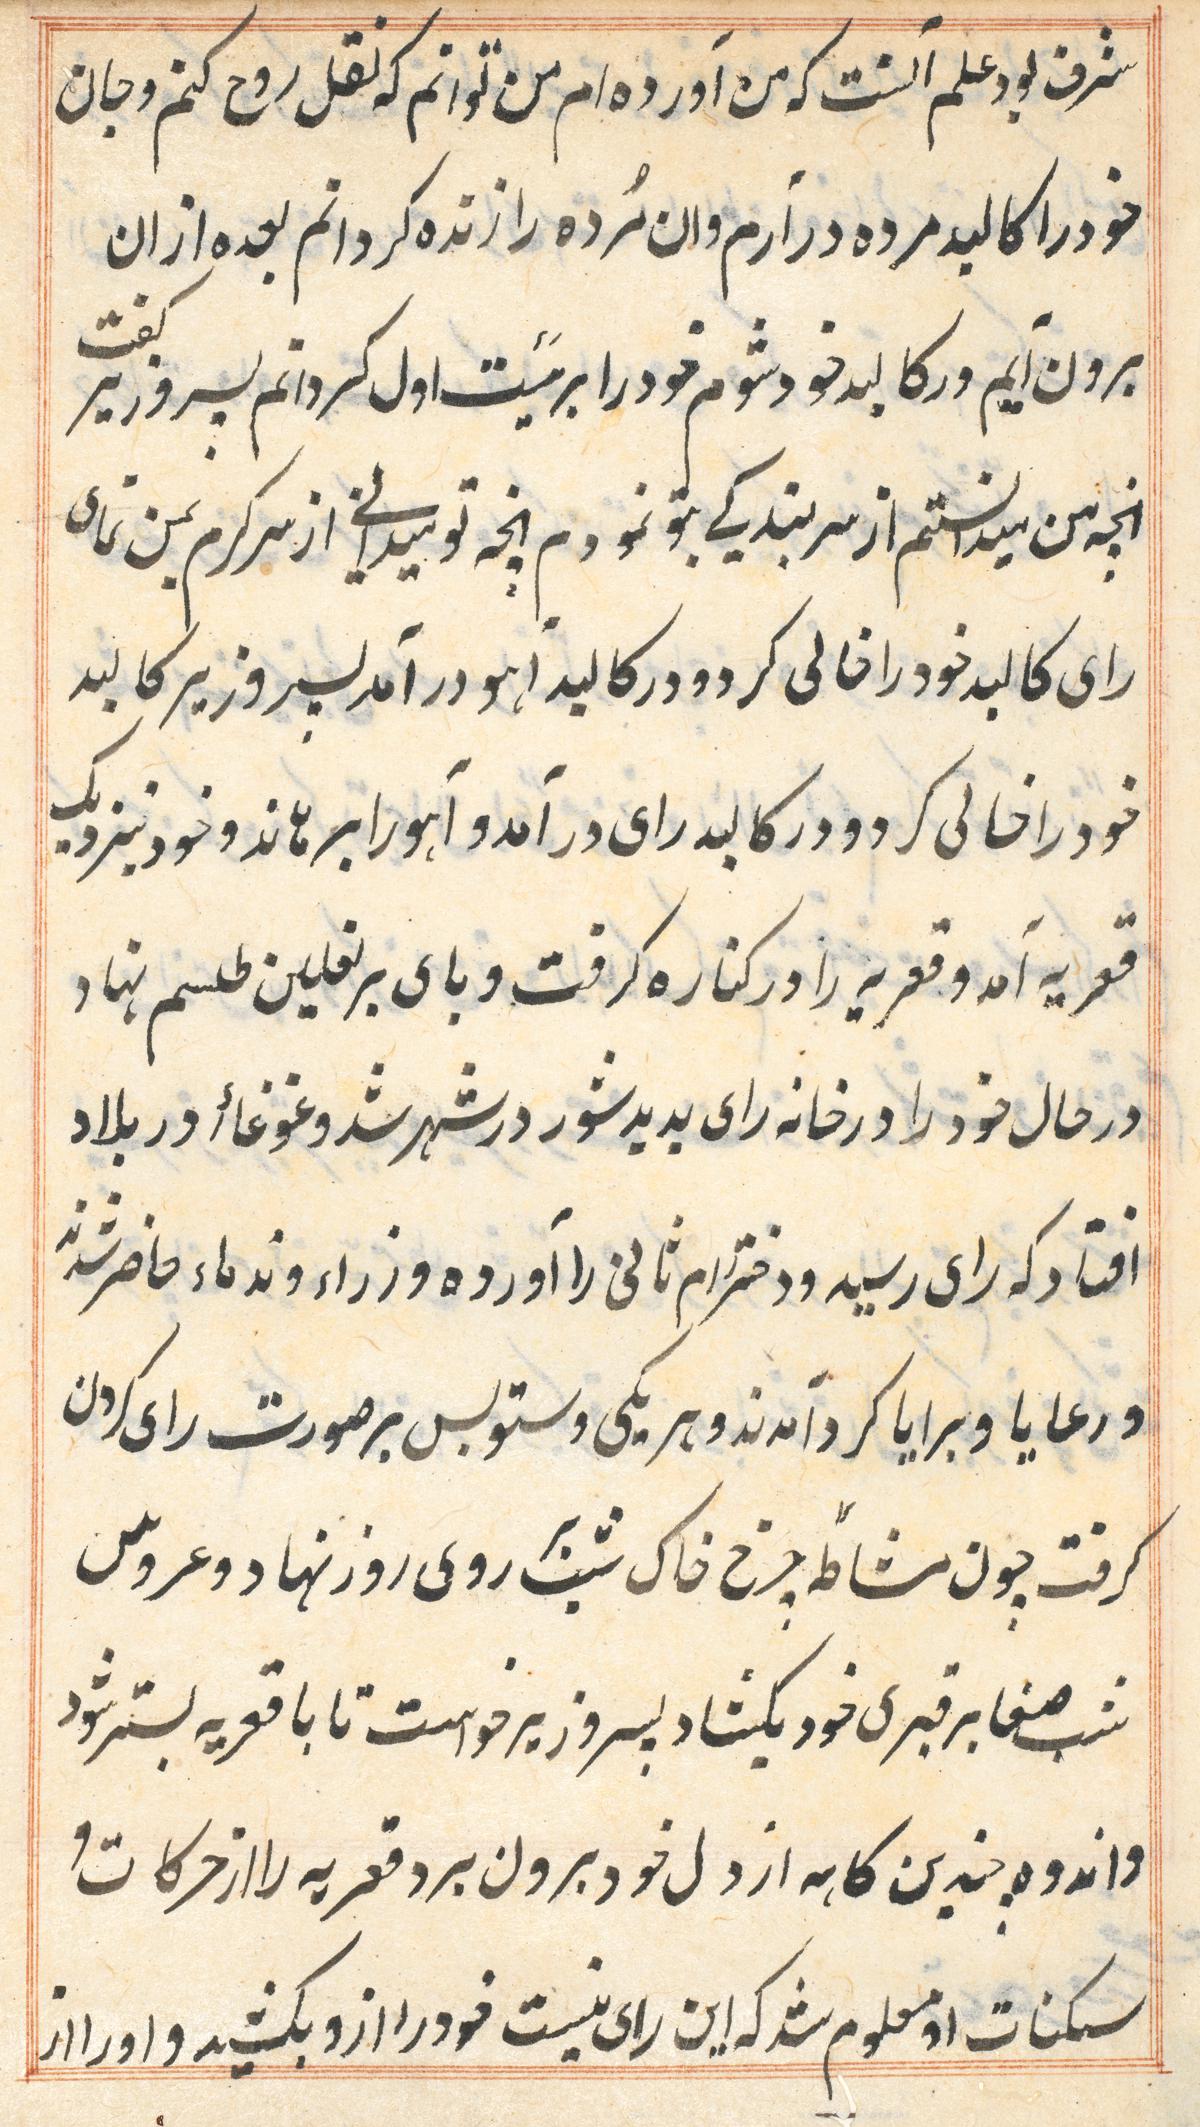 شرف بود علم آنست که من آورده ام من توانم که نقل روح کنم و جان
خود را کالبد مرده در آرم وان مُرده را زنده کردانم بعده از ان
برون آیم ودر کالبد خود شوم خود را برهیئت اول کردانم پسر وزیر کفت
انچه من میدانستم از سر بندیکے بتو نمودم انچه تو میدانی از سر کرم بمن نمای
رای کالبد خود را خالی کرد و در کالبد آهو در آمد پسر وزیر کالبد
خود را خالی کرد و در کالبد رای در آمد و آهو را برماند و خود بنزدیک
قعریه آمد و قعریه را در کناره کرفت و بای بر نعلین طلسم نهاد
در حال خود را در خانه رای بدید شور در شهر شد و غوغاأ در بلاد
افتاد که رای رسید و دختر رام ثانی را آورده وزراء وندماء حاضر شدند
و رعایا و برایا کرد آمدند و هر یکی دستوبس بر صورت رای کردن
کرفت چون مشاطه چرخ خاک شب بر روی روز نهاد و عروس
شب صفا بر قبری خود بکشاد پسر وزیر خواست تا با قعریه بستر شود
و اندوه چندین کاهه از دل خود برون برد قعریه را از حرکات و
سکنات او معلوم شد که این رای نیست خود را ازو بکشید و او را از